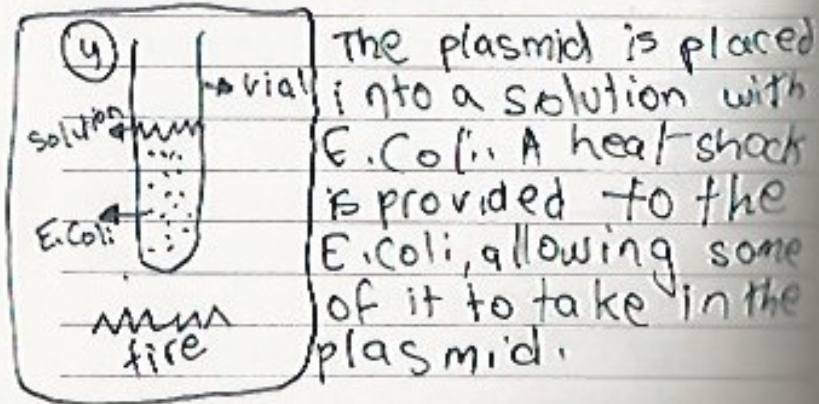 4
vial
solution
E.Coli
fire
The plasmid is placed
into a solution with
E.Coli. A heat-shock
is provided to the
E.Coli, allowing some
of it to take in the
plasmid.